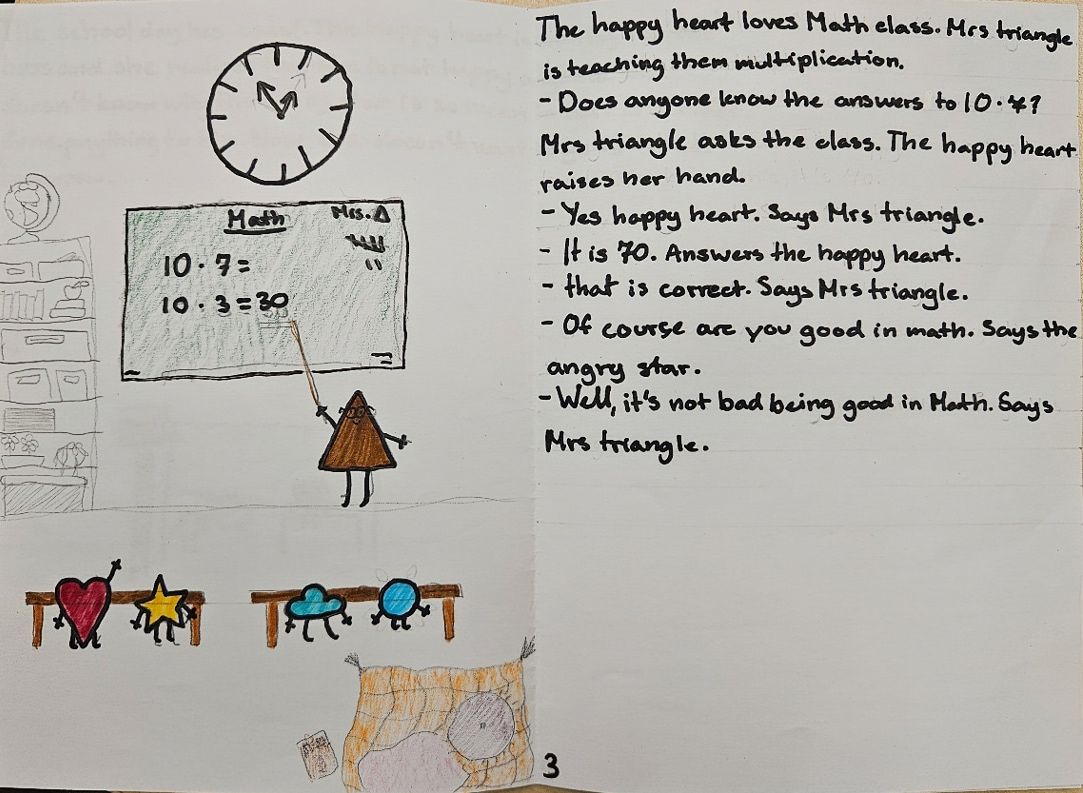 Math
Mrs. Δ
10 · 7 =
10 · 3 = 30
The happy heart loves Math class. Mrs triangle
is teaching them multiplication.
- Does anyone know the answers to 10 · 7?
Mrs triangle asks the class. The happy heart
raises her hand.
- Yes happy heart. Says Mrs triangle.
- It is 70. Answers the happy heart.
- that is correct. Says Mrs triangle.
- Of course are you good in math. Says the
angry star.
- Well, it's not bad being good in Math. Says
Mrs triangle.
3